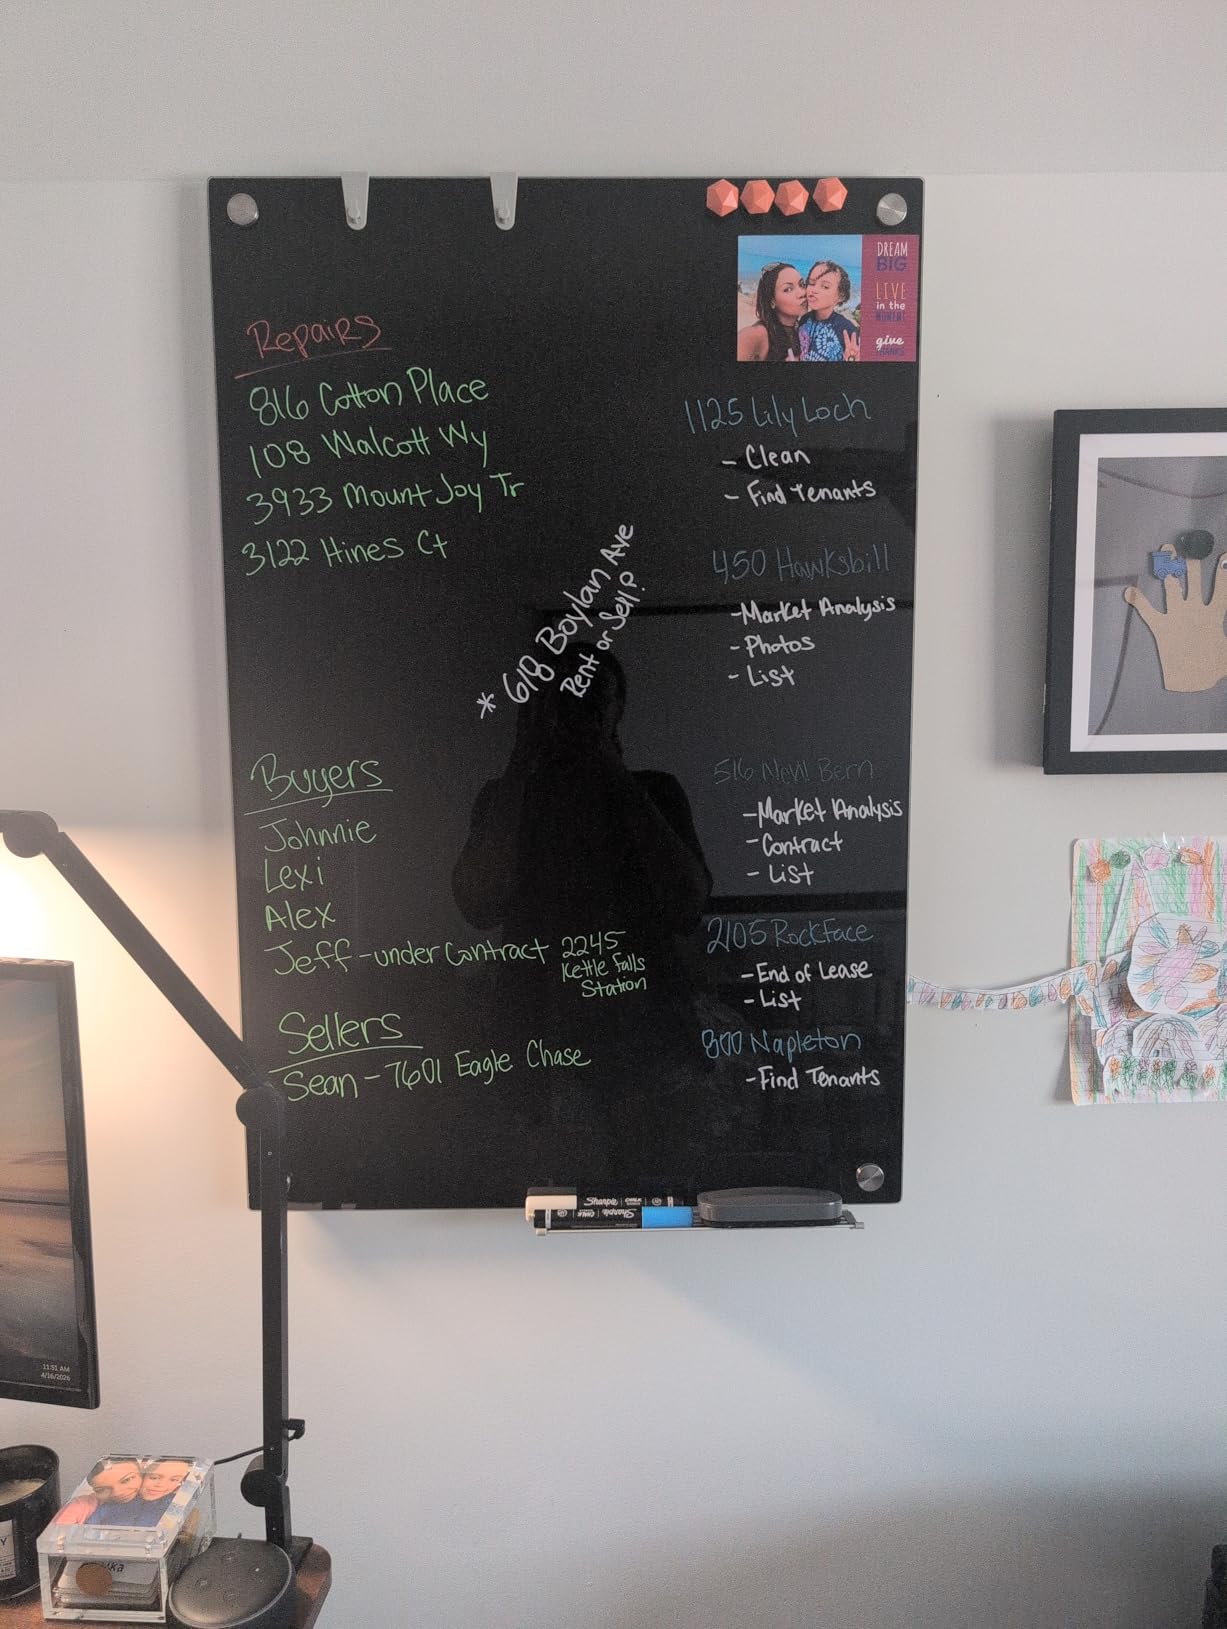 DREAM
BIG
LIVE
in the
MOMENT
give
THANKS
Repairs
816 Cotton Place
108 Walcott Wy
3933 Mount Joy Tr
3122 Hines Ct
* 618 Boylan Ave
Rent or Sell?
Buyers
Johnnie
Lexi
Alex
Jeff - under Contract 2245
Kettle Falls
Station
Sellers
Sean - 7601 Eagle Chase
1125 Lily Loch
- Clean
- Find Tenants
450 Hawksbill
- Market Analysis
- Photos
- List
516 New Bern
- Market Analysis
- Contract
- List
2105 Rockface
- End of Lease
- List
800 Napleton
- Find Tenants
Sharpie
Sharpie
11:51 AM
4/16/2026